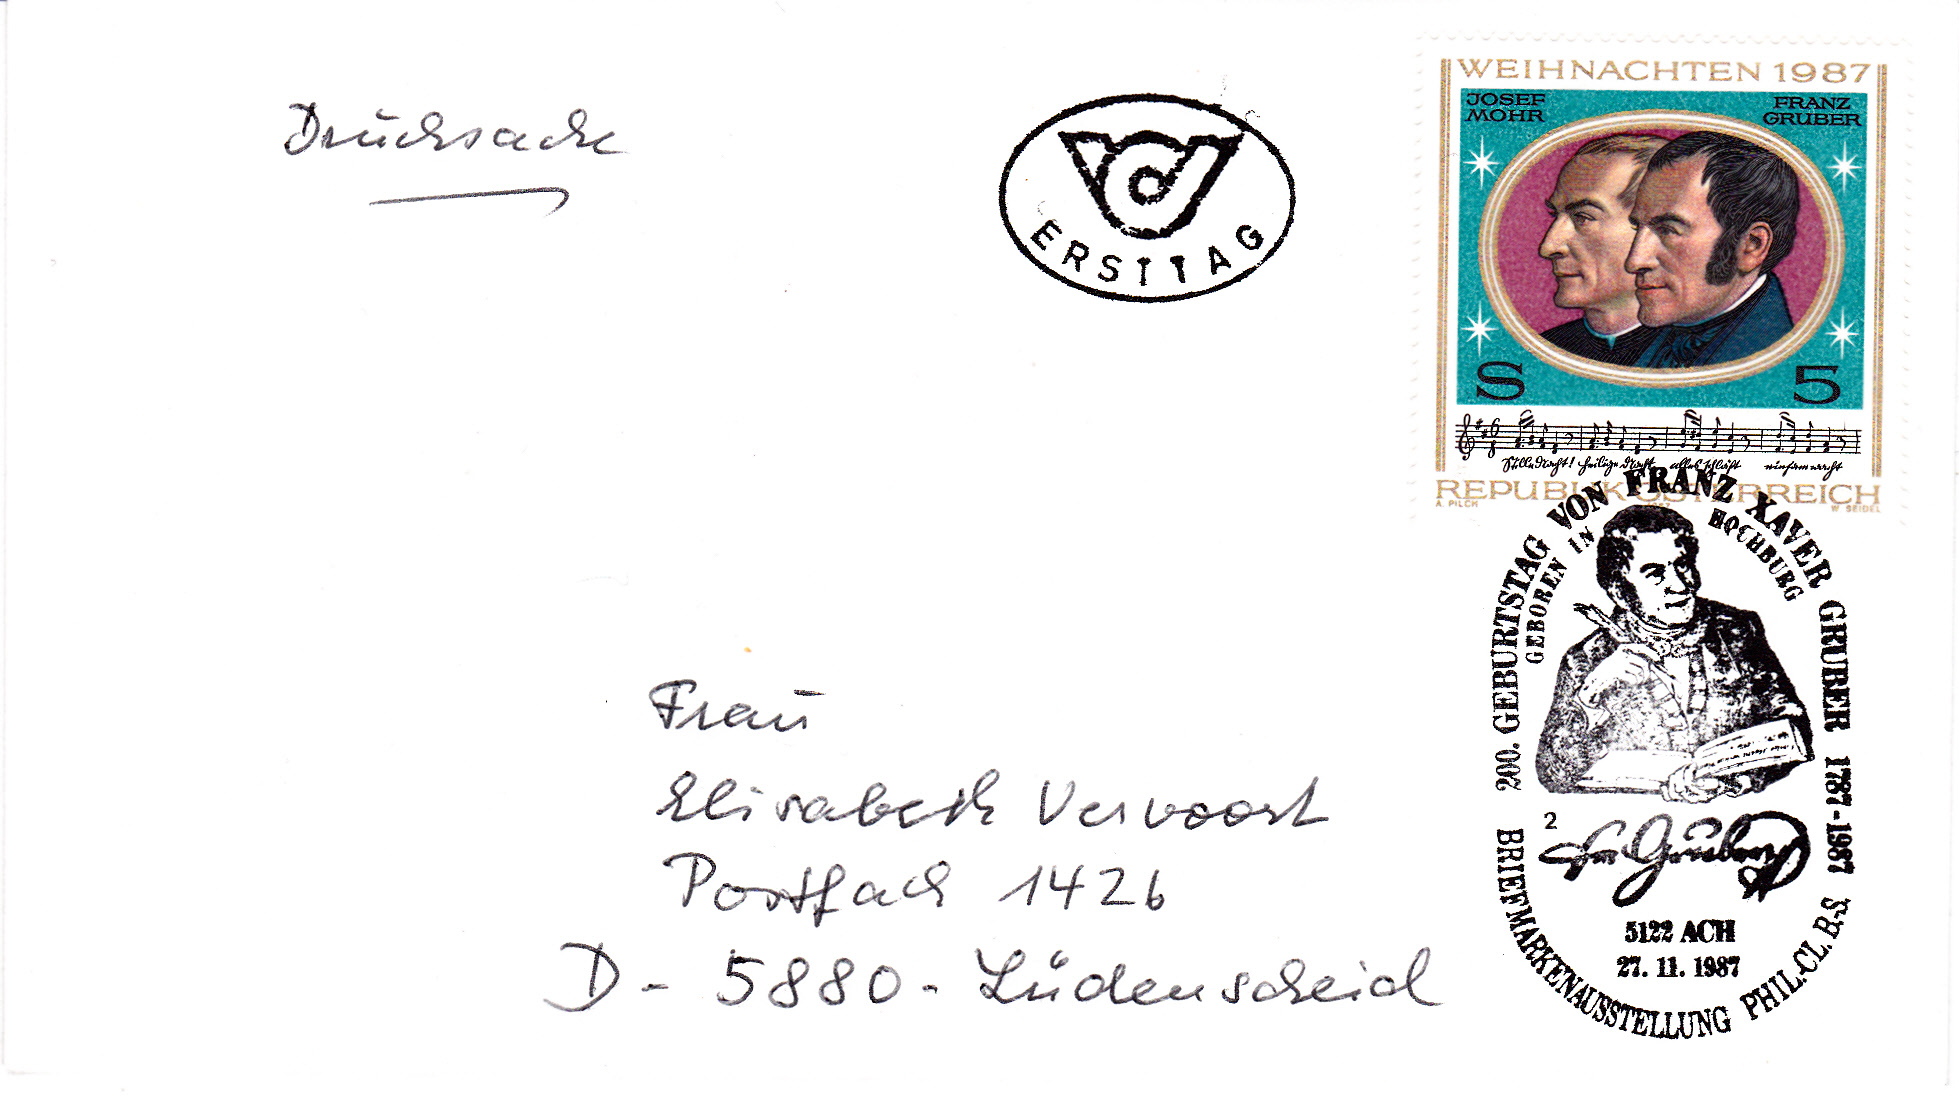 Drucksache
ERSTTAG
WEIHNACHTEN 1987
JOSEF MOHR
FRANZ GRUBER
S 5
Stille Nacht! Heilige Nacht alles schläft einsam wacht
REPUBLIK ÖSTERREICH
A. PILCH 1987 W. SEIDEL
200. GEBURTSTAG VON FRANZ XAVER GRUBER 1787-1987
GEBOREN IN HOCHBURG
2
Fr Gruber
5122 ACH
27. 11. 1987
BRIEFMARKENAUSSTELLUNG PHIL.CL. B.-S.
Frau
Elisabeth Vervoort
Postfach 1426
D - 5880 - Lüdenscheid